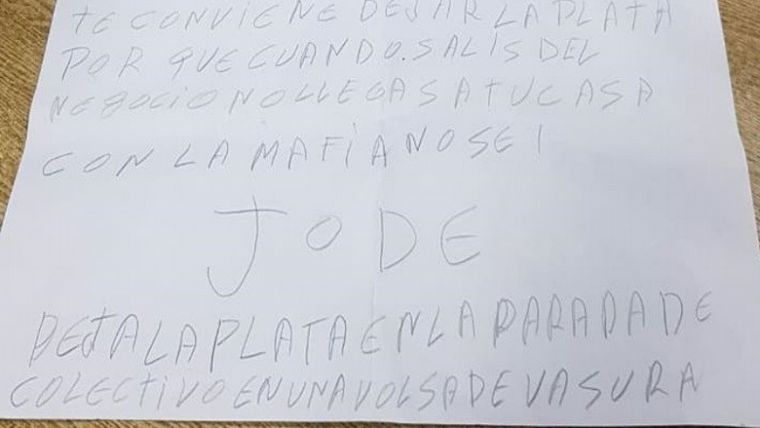 TE CONVIENE DEJAR LA PLATA
POR QUE CUANDO. SALIS DEL
NEGOCIO NO LLEGAS A TU CASA
CON LA MAFIA NO SE I
JODE
DEJA LA PLATA EN LA PARADA DE
COLECTIVO EN UNA VOLSA DE VASURA